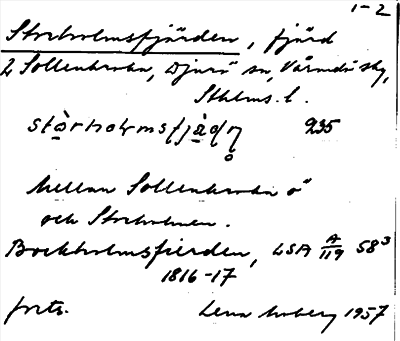 1-2
Storholmsfjärden, fjärd
2 Sollenkroka, Djurö sn, Värmdö sky,
Sthlms. l.
stòrholmsfjä̀ḍn̥ 235
Mellan Sollenkroka ö
och Storholmen.
Bockholmsfierden, LSA A/119 58³
1816-17
forts. Lena Moberg 1957